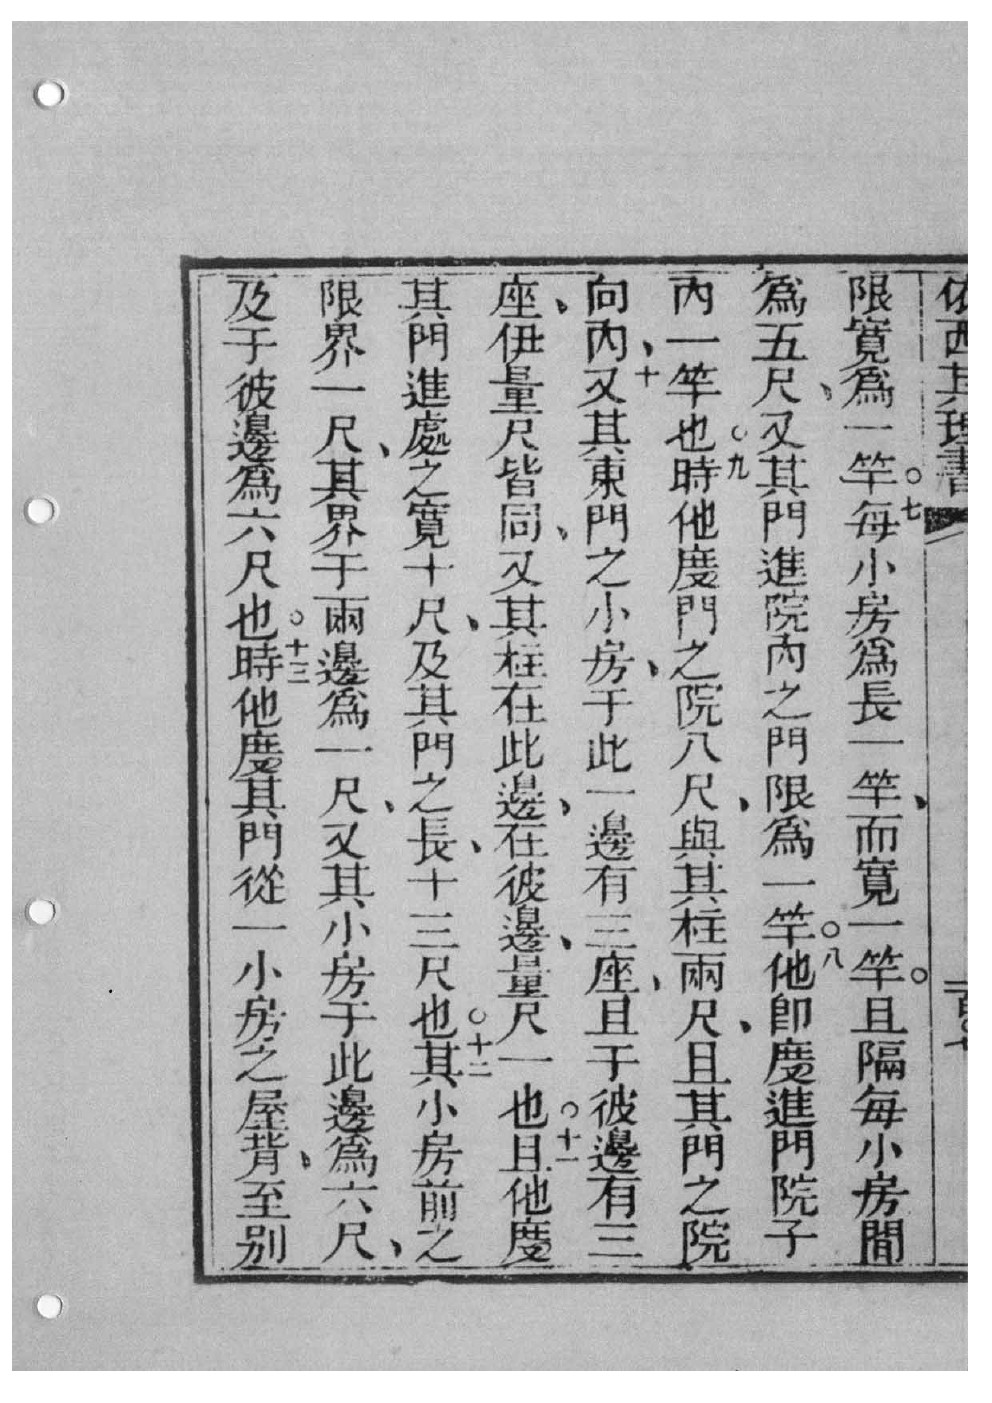 依西其理書
限寬爲一竿。七每小房爲長一竿、而寬一竿。且隔每小房間
爲五尺、又其門進院內之門限爲一竿。八他卽度進門院子
內一竿也。九時他度門之院八尺、與其柱兩尺、且其門之院
向內、十又其東門之小房、于此一邊有三座、且于彼邊有三
座、伊量尺皆同、又其柱在此邊、在彼邊、量尺一也。十一且他度
其門進處之寬十尺、及其門之長、十三尺也。十二其小房前之
限界一尺、其界于兩邊爲一尺、又其小房于此邊爲六尺、
及于彼邊爲六尺也。十三時他度其門從一小房之屋背、至別